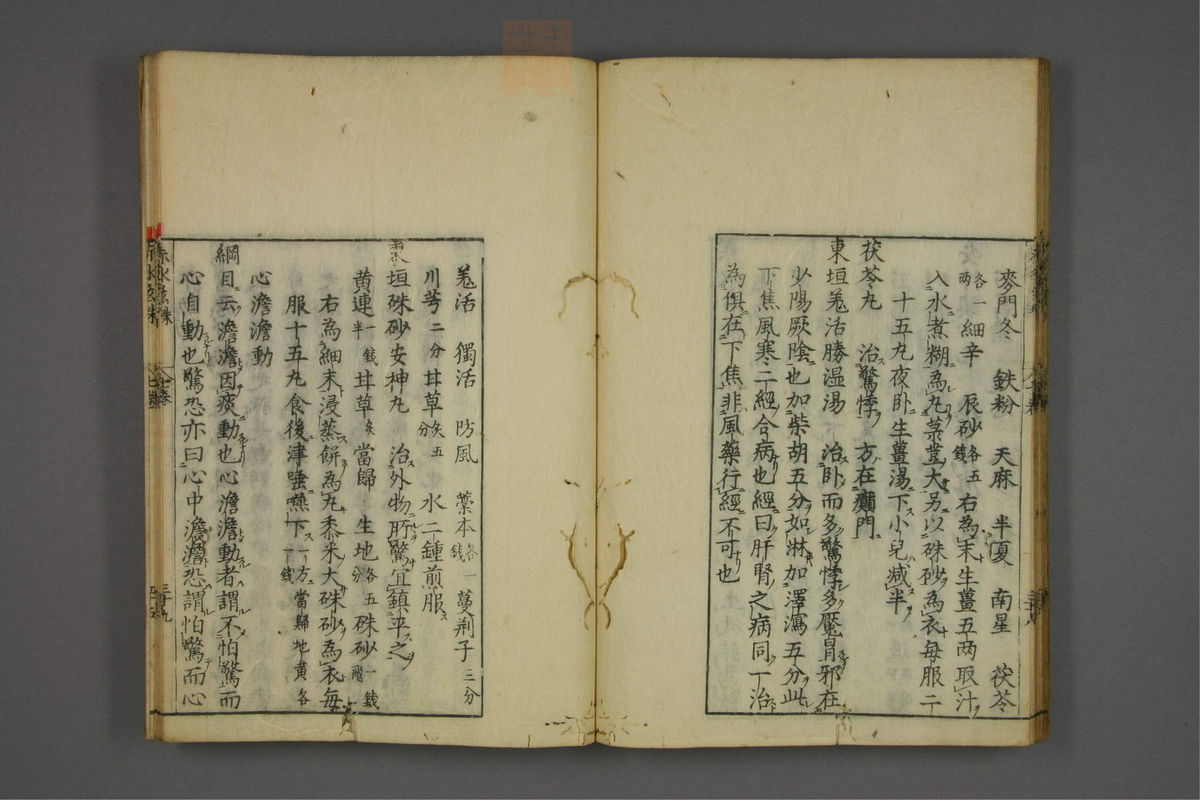 麥門冬 鉄粉 天麻 半夏 南星 茯苓
各一兩 細辛 辰砂各五錢 右為末生薑五兩取汁
入水煮糊為丸菉荳大另以硃砂為衣毎服二
十五丸夜卧生薑湯下小兒减半
茯苓丸 治驚悸 方在癇門
東垣羗活勝湿湯 治卧而多驚悸多魘冒邪在
少陽厥陰也加柴胡五分如淋加澤瀉五分此
下焦風寒二經合病也經曰肝腎之病同一治
為俱在下焦非風藥行經不可也
羗活 獨活 防風 藁本各一錢 蔓荊子三分
川芎二分 甘草炙五分 水二鍾煎服
垣硃砂安神丸 治外物所驚宜鎮平之
黄連一錢半 甘草炙 當歸 生地各五分 硃砂一錢
右為細末浸蒸餅為丸黍米大硃砂為衣毎
服十五丸食後津唾嚥下一方當歸地黄各一錢
心澹澹動
綱目云澹澹因痰動也心澹澹動者謂不怕驚而
心自動也驚恐亦曰心中澹澹恐謂怕驚而心